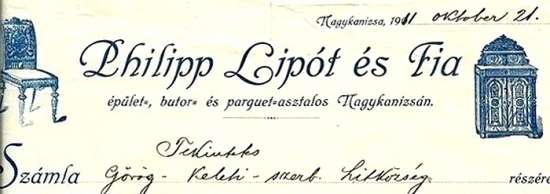 Nagykanizsa, 1911 október 21.
Philipp Lipót és Fia
épület-, butor- és parquet-asztalos Nagykanizsán.
Számla Tekintetes
Görög-keleti-szerb. hitközség részére